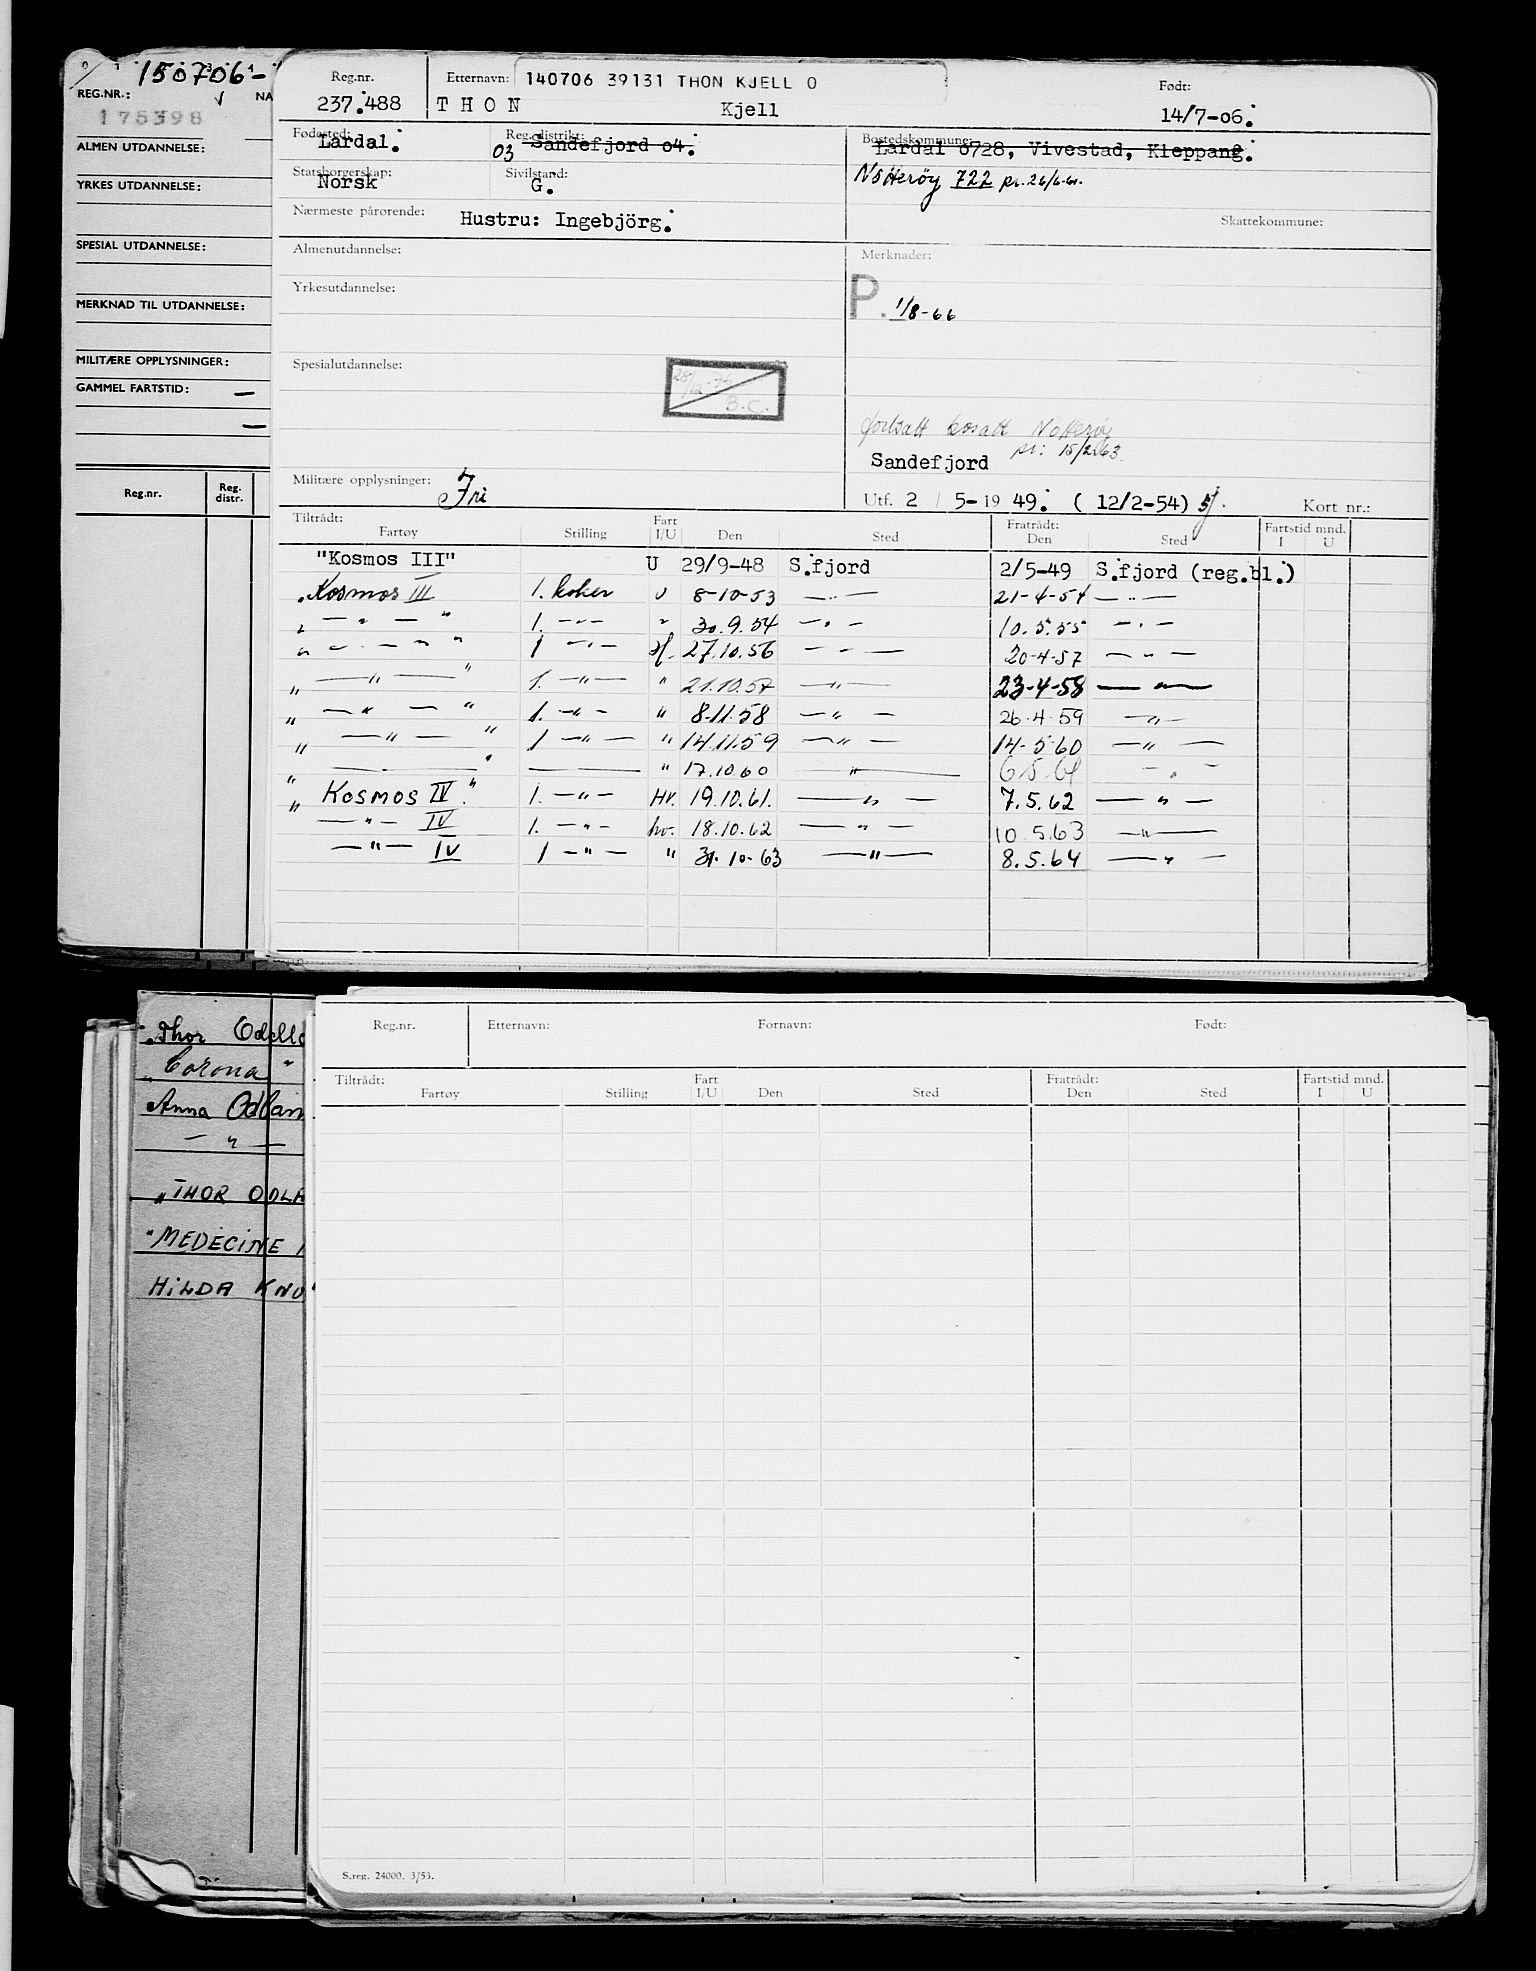 150706-
REG.NR.:
NA
175398
ALMEN UTDANNELSE:
YRKES UTDANNELSE:
SPESIAL UTDANNELSE:
MERKNAD TIL UTDANNELSE:
MILITÆRE OPPLYSNINGER:
GAMMEL FARTSTID: —
—
Reg.nr. Reg. distr.
Reg.nr. Etternavn: 140706 39131 THON KJELL O Født:
237.488 THON Kjell 14/7-06.
Fødested: Reg.distrikt: Bostedskommune:
Lardal. 03 Sandefjord o4. Lardal 0728, Vivestad, Kleppang.
Statsborgerskap: Sivilstand:
Norsk G. Nötteröy 722 pr. 26/6-61.
Nærmeste pårørende: Hustru: Ingebjörg. Skattekommune:
Almenutdannelse: Merknader:
Yrkesutdannelse: P. 1/8-66
Spesialutdannelse: B.C.
fortsatt bosatt Nötteröy
pr: 15/2.63.
Sandefjord
Militære opplysninger: Fri Utf. 2 / 5-19 49. ( 12/2-54) Kort nr.:
Tiltrådt: Fart Fratrådt: Fartstid mnd.
Fartøy Stilling I/U Den Sted Den Sted I U
"Kosmos III" U 29/9-48 S.fjord 2/5-49 S.fjord (reg.bl.)
„Kosmos III 1. koker U 8-10-53 —"— 21-4-54 —"—
„ — " — " 1. —"— " 30.9.54 —"— 10.5.55 —"—
„ — " — " 1 —"— 27.10.56 —"— 20-4-57 —"—
„ — " — " 1. —"— " 21.10.57 —"— 23-4-58 —"—
„ — " — " 1. —"— " 8-11.58 —"— 26-4-59 —"—
„ — " — " 1 —"— " 14.11.59 —"— 14-5-60 —"—
„ ——— " ——— " 17.10.60 —"— 6.5.61 —"—
„ Kosmos IV." 1. —"— Hv. 19.10.61. —"— 7.5.62 —"—
—"— IV 1. —"— hv. 18.10.62 —"— 10.5.63 —"—
—"— IV 1 —"— " 31.10-63 —"— 8.5.64 —"—
„Thor
„Corona"
Anna
— " —
„THOR
"MEDECINE
HILDA
Reg.nr. Etternavn: Fornavn: Født:
Tiltrådt: Fart Fratrådt: Fartstid mnd.
Fartøy Stilling I/U Den Sted Den Sted I U
S.reg. 24000. 3/53.